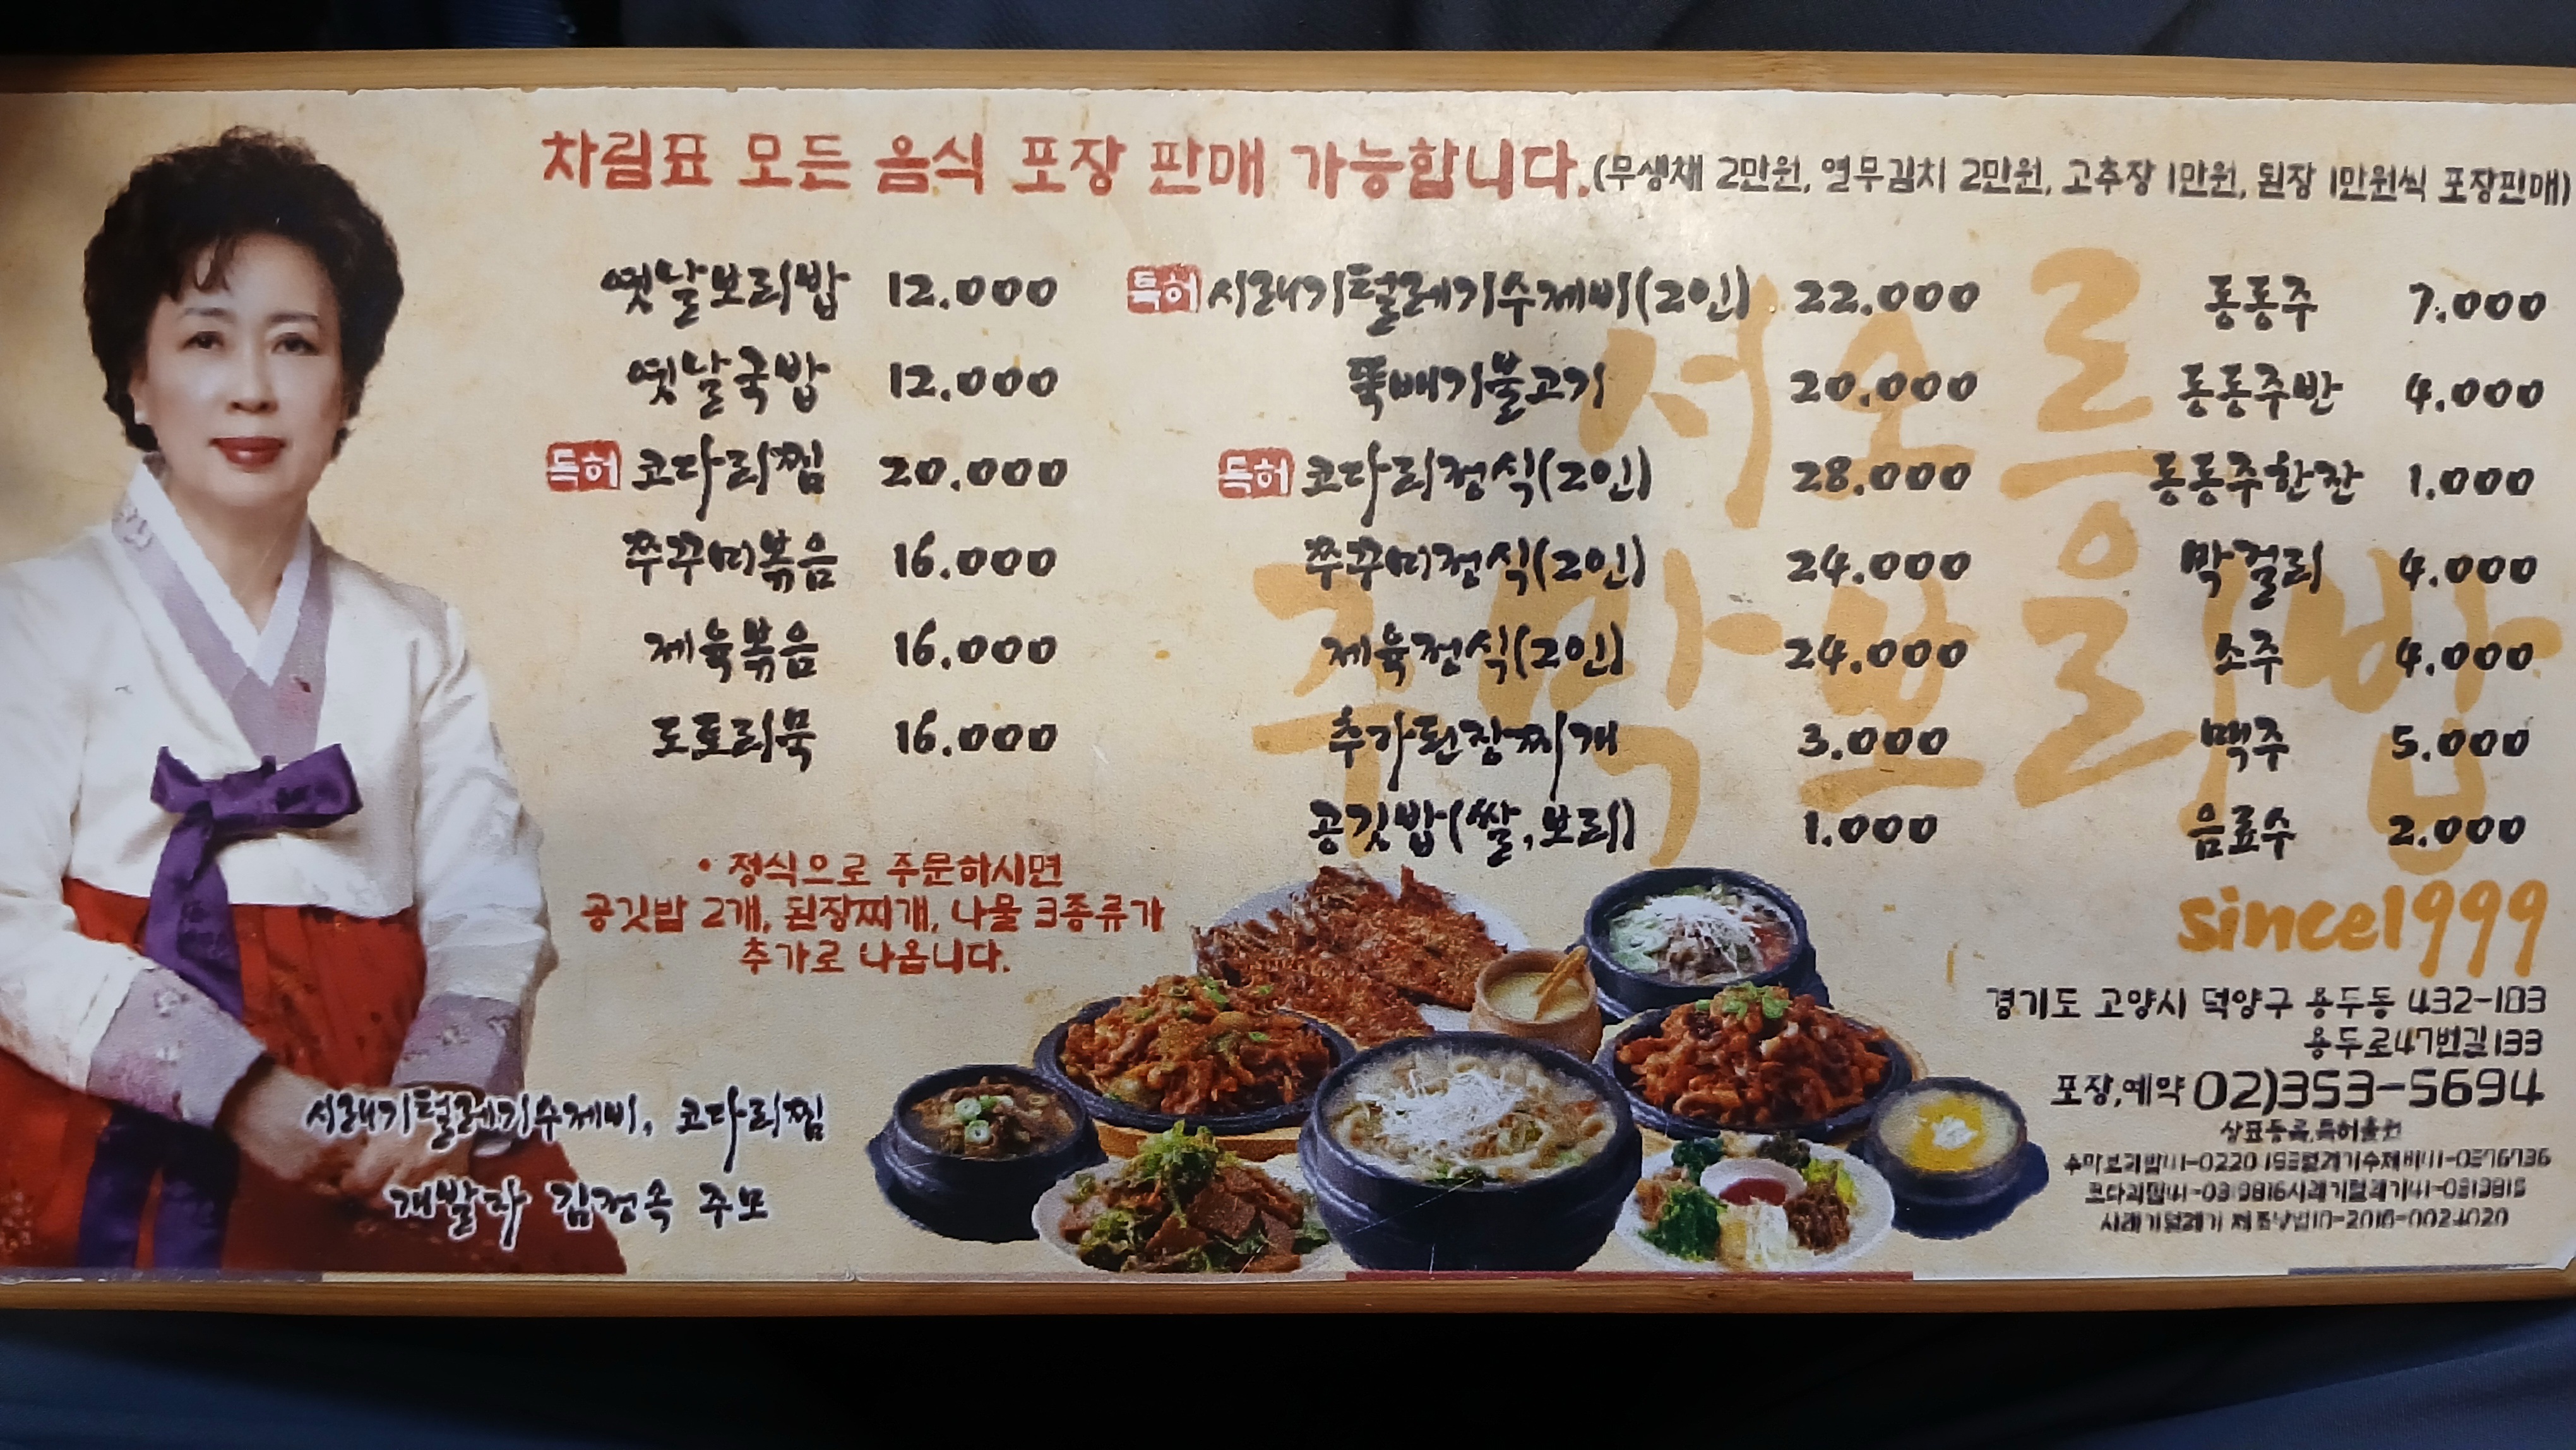 차림표 모든 음식 포장 판매 가능합니다.(무생채 2만원, 열무김치 2만원, 고추장 1만원, 된장 1만원씩 포장판매)
옛날보리밥 12.000
옛날국밥 12.000
특허 코다리찜 20.000
쭈꾸미볶음 16.000
제육볶음 16.000
도토리묵 16.000
• 정식으로 주문하시면
공깃밥 2개, 된장찌개, 나물 3종류가
추가로 나옵니다.
특허 시래기털레기수제비(2인) 22.000
뚝배기불고기 20.000
특허 코다리정식(2인) 28.000
쭈꾸미정식(2인) 24.000
제육정식(2인) 24.000
추가된장찌개 3.000
공깃밥(쌀,보리) 1.000
동동주 7.000
동동주반 4.000
동동주한잔 1.000
막걸리 4.000
소주 4.000
맥주 5.000
음료수 2.000
서오릉
주막보리밥
since1999
시래기털레기수제비, 코다리찜
개발자 김정숙 주모
경기도 고양시 덕양구 용두동 432-183
용두로47번길133
포장,예약 02)353-5694
상표등록,특허출원